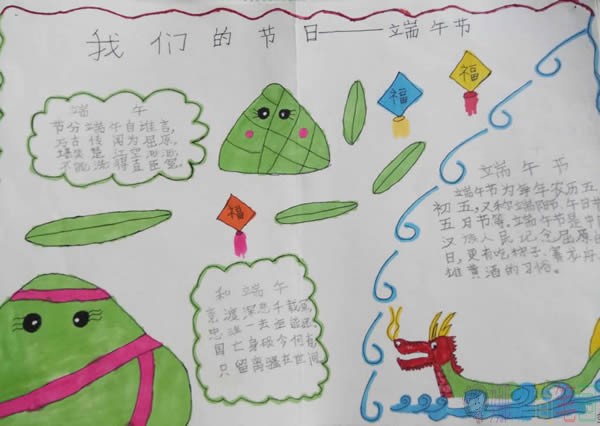 我们的节日——端午节
端午
节分端午自谁言,
万古传闻为屈原,
堪笑楚江空渺渺
不能洗得直臣冤。
福
福
福
和端午
竞渡深悲千载冤
忠魂一去讵能还
国亡身殒今何有
只留离骚在世间
端午节
端午节为每年农历五
初五,又称端阳节、午日节
五月节等。端午节是中
汉族人民纪念屈原的
日,更有吃粽子、
雄黄酒的习俗。